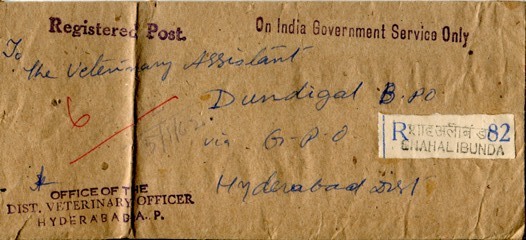 Registered Post.
On India Government Service Only
To
The Veterinary Assistant
Dundigal B.PO
via G.P.O
Hyderabad Dist
6
R 82
SHAHALIBUNDA
OFFICE OF THE
DIST. VETERINARY OFFICER
HYDERABAD A. P.